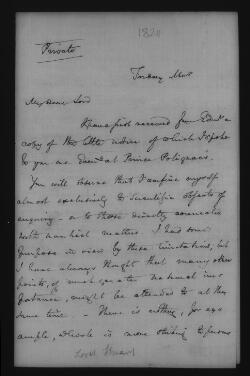 1824
Private
Tuesday
My dear Lord
I have just received from Edinr a
copy of the little notice of which I spoke
to you on Sunday at Prince Polignac's.
You will observe that I confine myself
almost exclusively to scientific objects of
enquiry - or to those directly connected
with nautical matters. I had some
purpose in view by these limitations, but
I have always thought that many other
points, of much greater national im-
portance, might be attended to at the
same time - There is nothing, for ex-
ample, which is more striking to persons
Lord